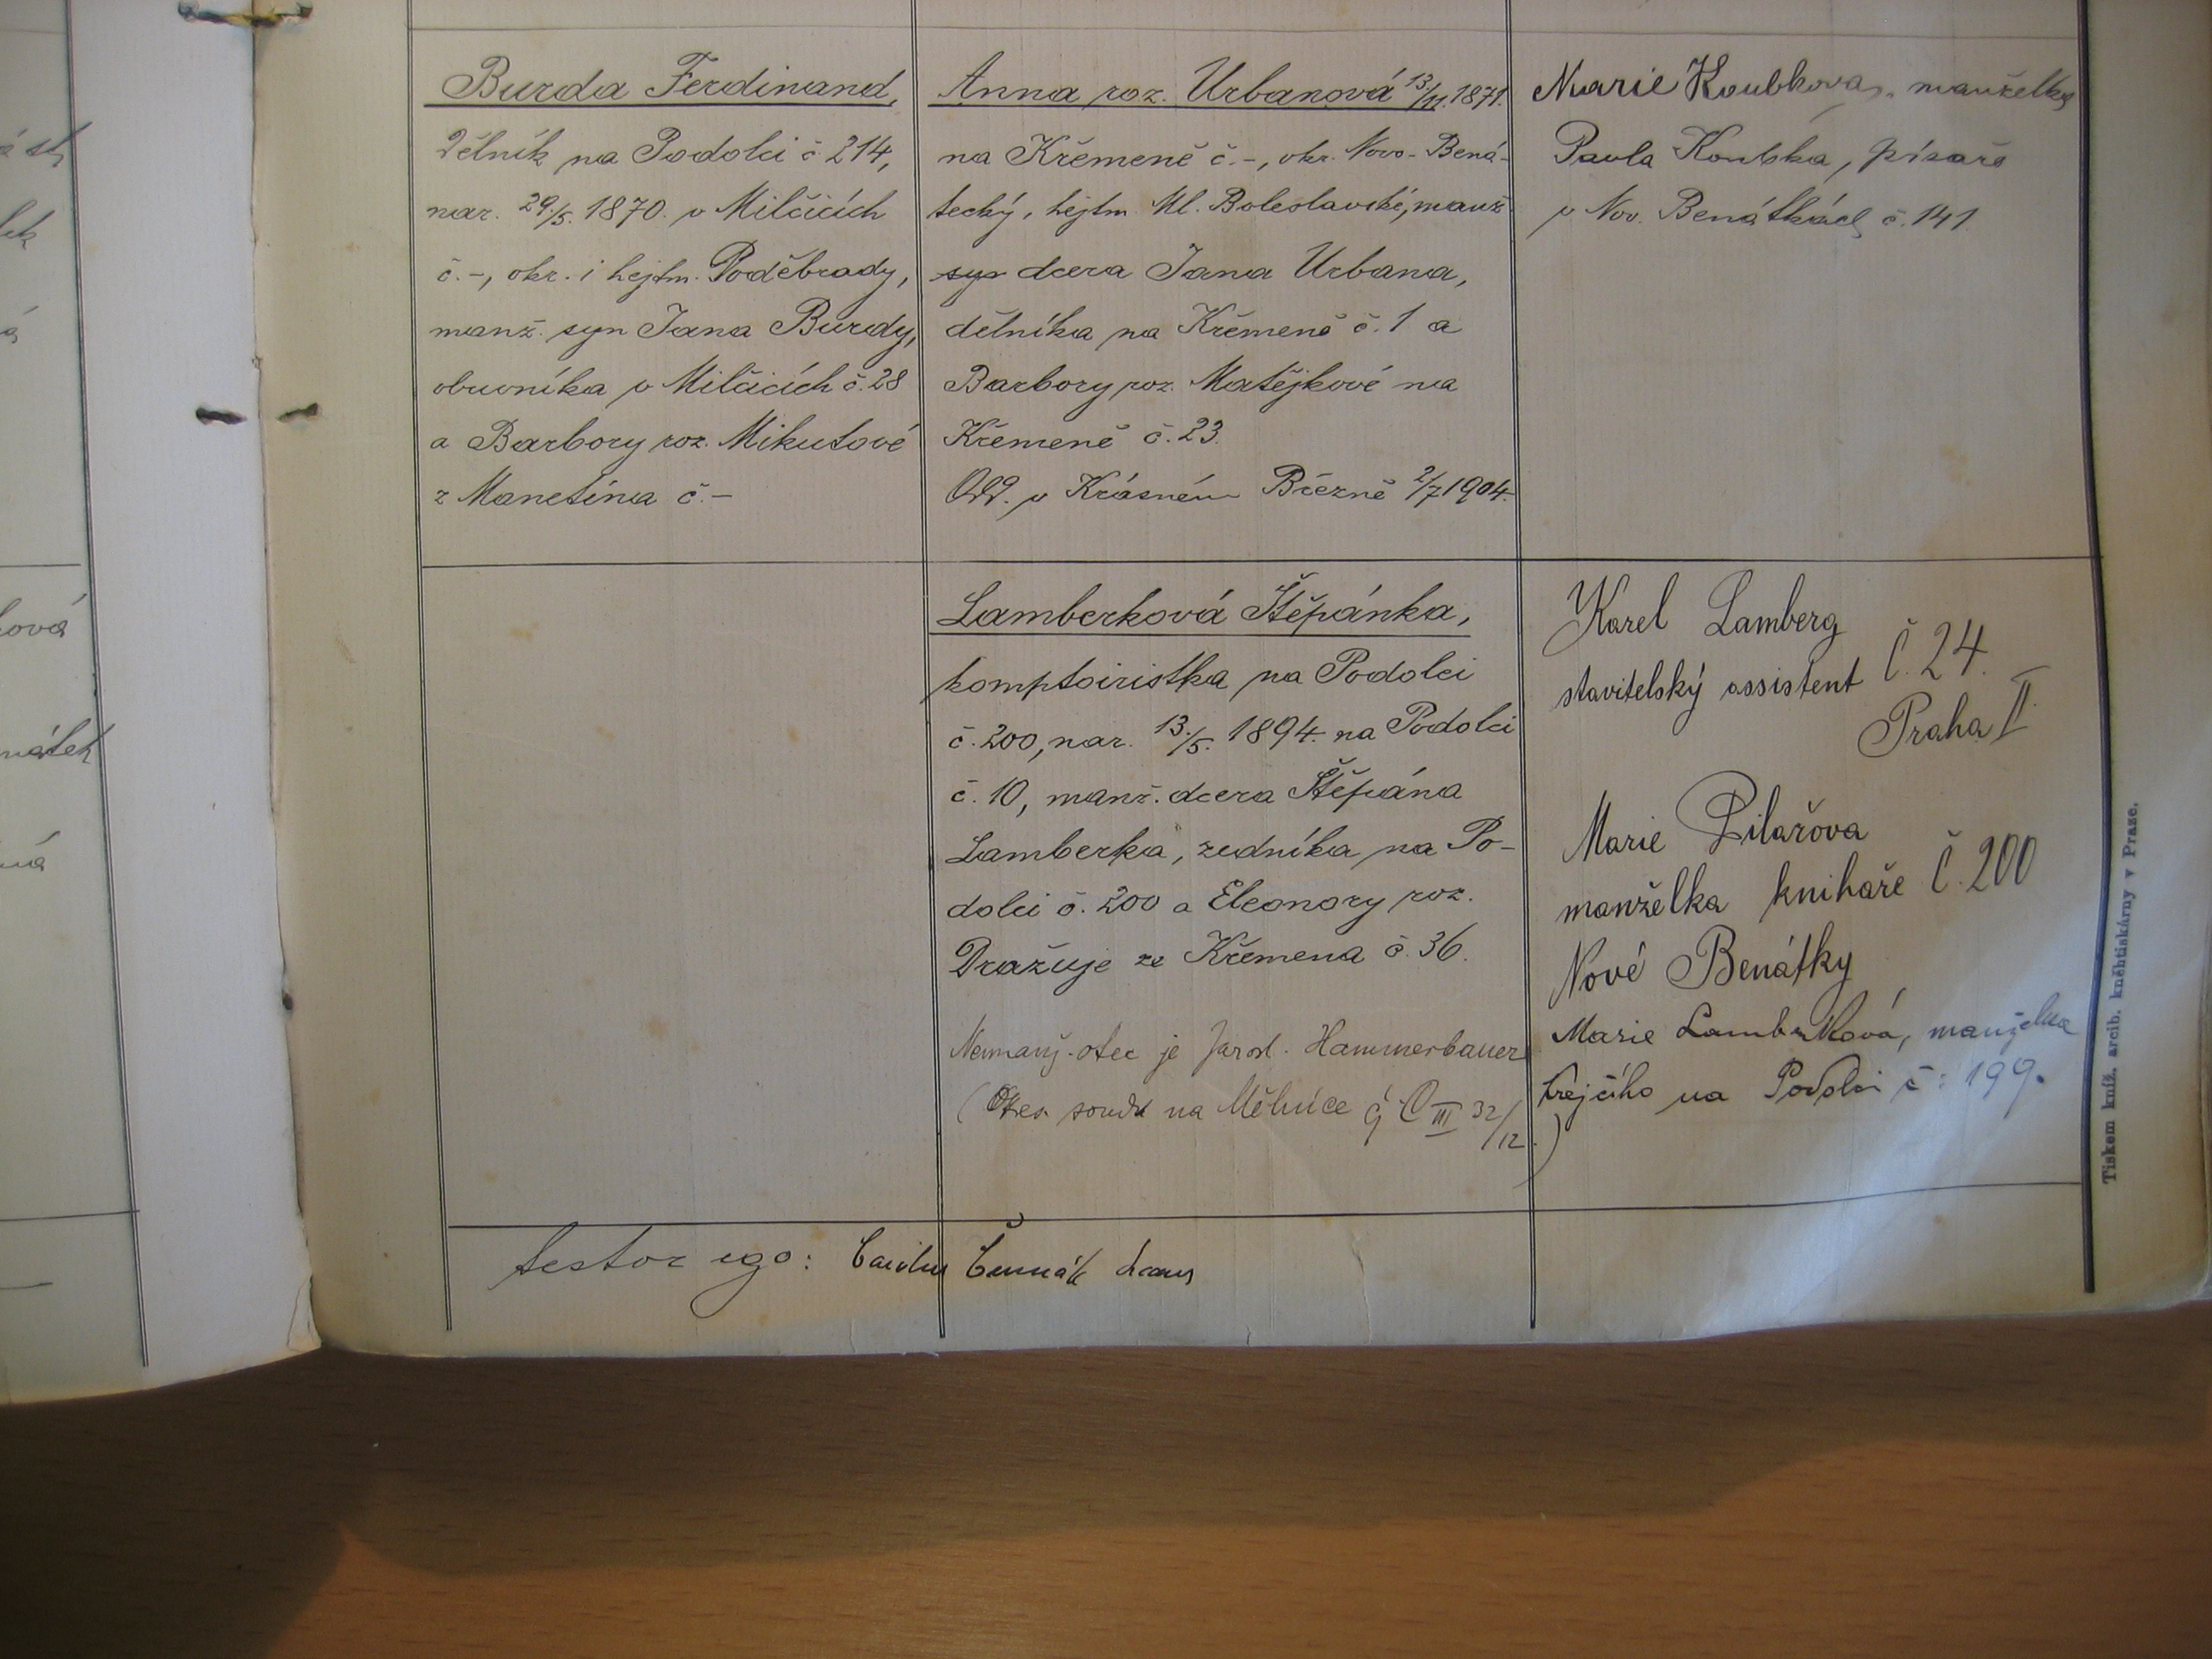 Burda Ferdinand,
dělník na Podolci č. 214,
nar. 29./5. 1870. v Milčicích
č.-, okr. i hejtm. Poděbrady,
manž. syn Jana Burdy,
obuvníka v Milčicích č. 28
a Barbory roz. Mikutové
z Manetína č.-
Anna roz. Urbanová 13./11. 1871.
na Křemeně č.-, okr. Novo-Bená-
tecký, hejtm. Ml. Boleslavské, manž
syn dcera Jana Urbana,
dělníka na Křemeně č. 1 a
Barbory roz. Matějkové na
Křemeně č. 23.
Odd. v Krásném Březně 2/7 1904.
Marie Koubkova, manželka
Pavla Koubka, písaře
v Nov. Benátkách č. 141.
Lamberková Štěpánka,
komptoiristka na Podolci
č. 200, nar. 13./5. 1894. na Podolci
č. 10, manž. dcera Štěpána
Lamberka, zedníka na Po-
dolci č. 200 a Eleonory roz.
Dražuje ze Křemena č. 36.
Nemanž. otec je Jarosl. Hammerbauer
(Okres. soud na Mělníce čj C III 32/12.)
Karel Lamberg
stavitelský assistent Č. 24.
Praha II.
Marie Pilařova
manželka knihaře Č. 200
Nové Benátky
Marie Lamberková, manželka
krejčího na Podolci č: 199.
testor ego:
Tiskem kníž. arcib. knihtiskárny v Praze.
ová
ná